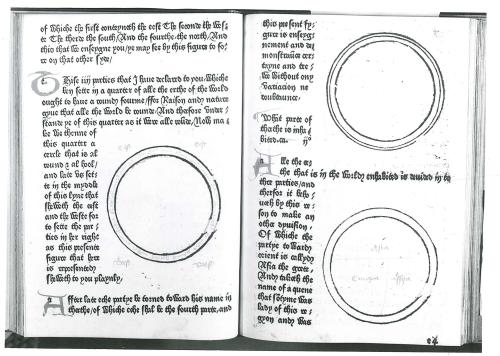 of whiche the first conteyneth the eest The seconde the wes-
te The therde the south/And the fourthe the north/And
this that we enseygne you/ye may see by this figure to fo-
re on that other syde/
Thise iiij parties that I haue declared to you/whiche
ben sette in a quarter of alle the erthe of the world
ought to haue a round fourme/ffor Raison and nature
gyue that alle the world be rounde And therfore vnder
stande ye of this quarter as it were alle rounde/Now ma
ke we thenne of
this quarter a
cercle that is al
round & al hool/
and late vs sette
in the myddle
of this lyne that
sheweth the eest
and the weste for
to sette the par-
ties in her right
as this presente
figure that here
is representedy
sheweth to you playnly,
Affter late eche partye be torned toward his name in
therthe/of whiche eche shal be the fourth parte, and
this present fy-
gure is enseyg-
nement and de
monstrance cer-
tayne and tre-
we without ony
variacion ne
doubtaunce/
What parte of
therthe is inha-
bited.ca. ijo
Alle the er-
the that is in the world enhabited is deuided in to
thre parties/and
therfor it beho-
ueth by this re-
son to make an
other dyuision,
Of whiche the
partye toward
orient is called
Asia the grete,
And taketh the
name of a quene
that somtyme was
lady of this re-
gyon and was
Asia
Europa